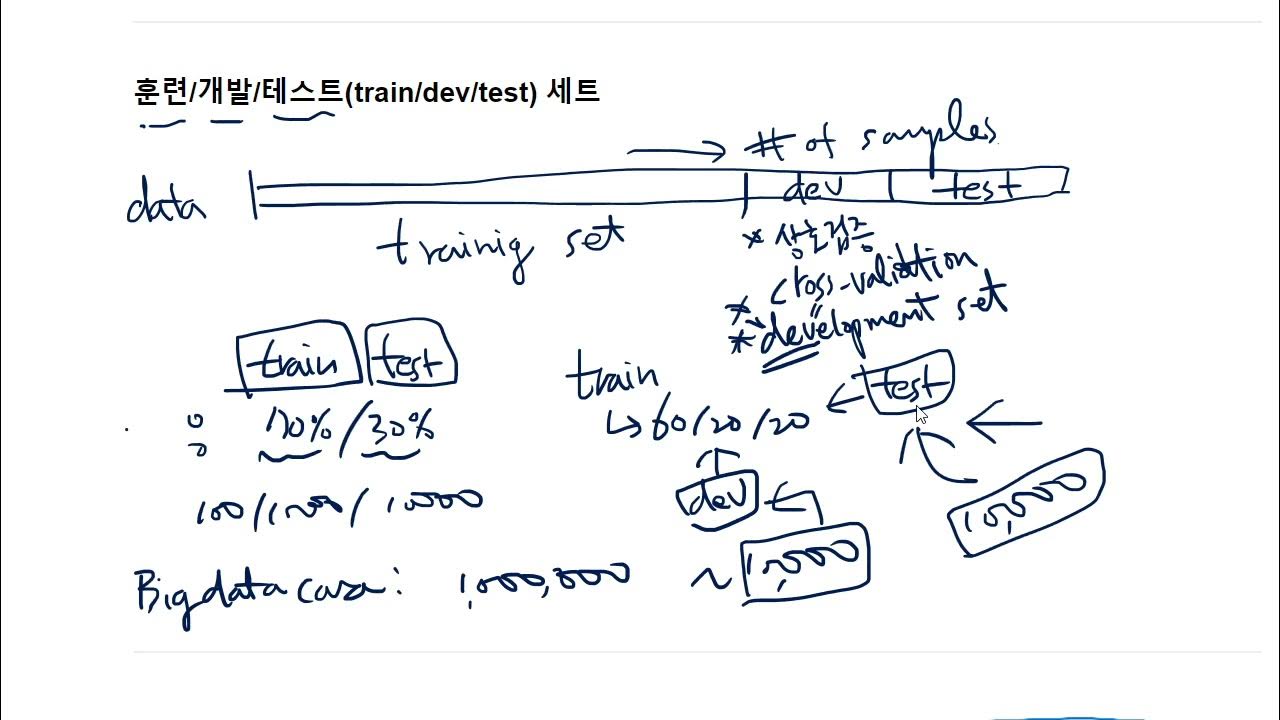 훈련/개발/테스트(train/dev/test) 세트
# of samples
data
dev
test
trainig set
* 상호검증
* cross-validation
* development set
train
test
train
test
: 70% / 30%
60/20/20
dev
10,000
Big data case: 1,000,000
~ 10,000